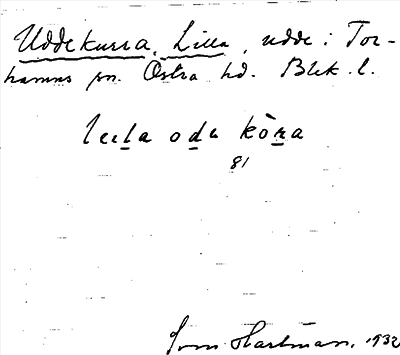 Uddekurra, Lilla, udde i Tor-
hamns sn. Östra hd. Blek. l.
lilla odə kòra
81
Sven Hartman, 1932